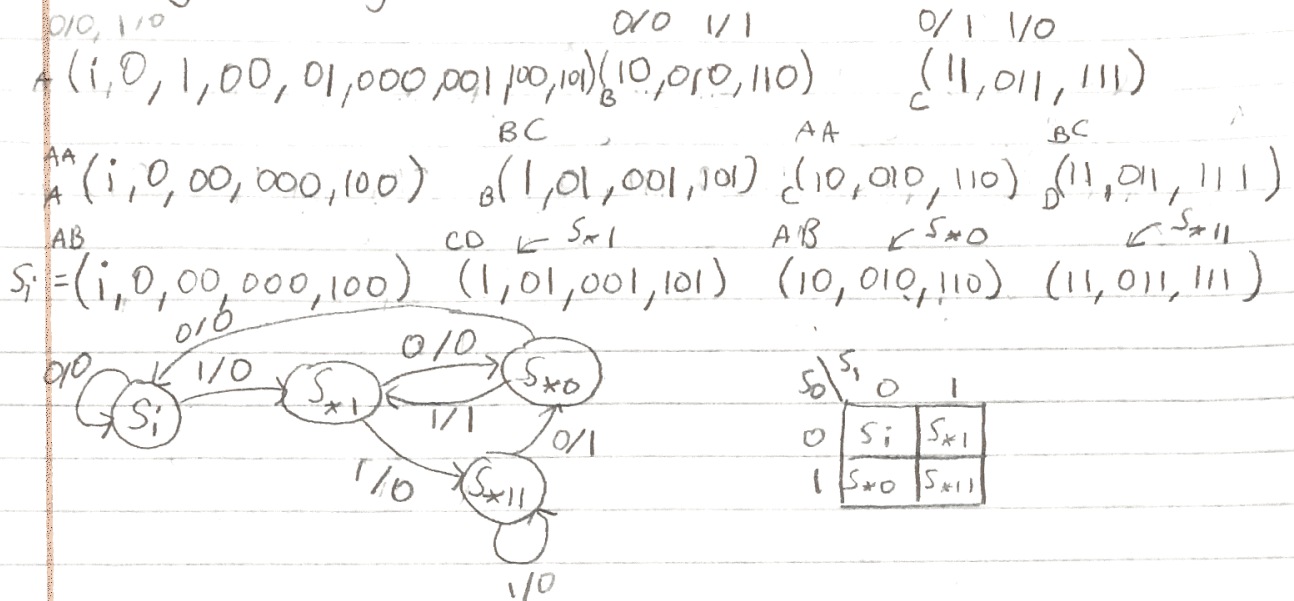 0/0, 1/0 0/0 1/1 0/1 1/0
A (i, 0, 1, 00, 01, 000, 001, 100, 101) B (10, 010, 110) C (11, 011, 111)
AA BC AA BC
A (i, 0, 00, 000, 100) B (1, 01, 001, 101) C (10, 010, 110) D (11, 011, 111)
AB CD ← S*1 AB ↙ S*0 ↙ S*11
Si = (i, 0, 00, 000, 100) (1, 01, 001, 101) (10, 010, 110) (11, 011, 111)
0/0
0/0 1/0 0/0
Si S*1 S*0
1/1 0/1
1/0 S*11
1/0
S0\S1 0 1
0 Si S*1
1 S*0 S*11